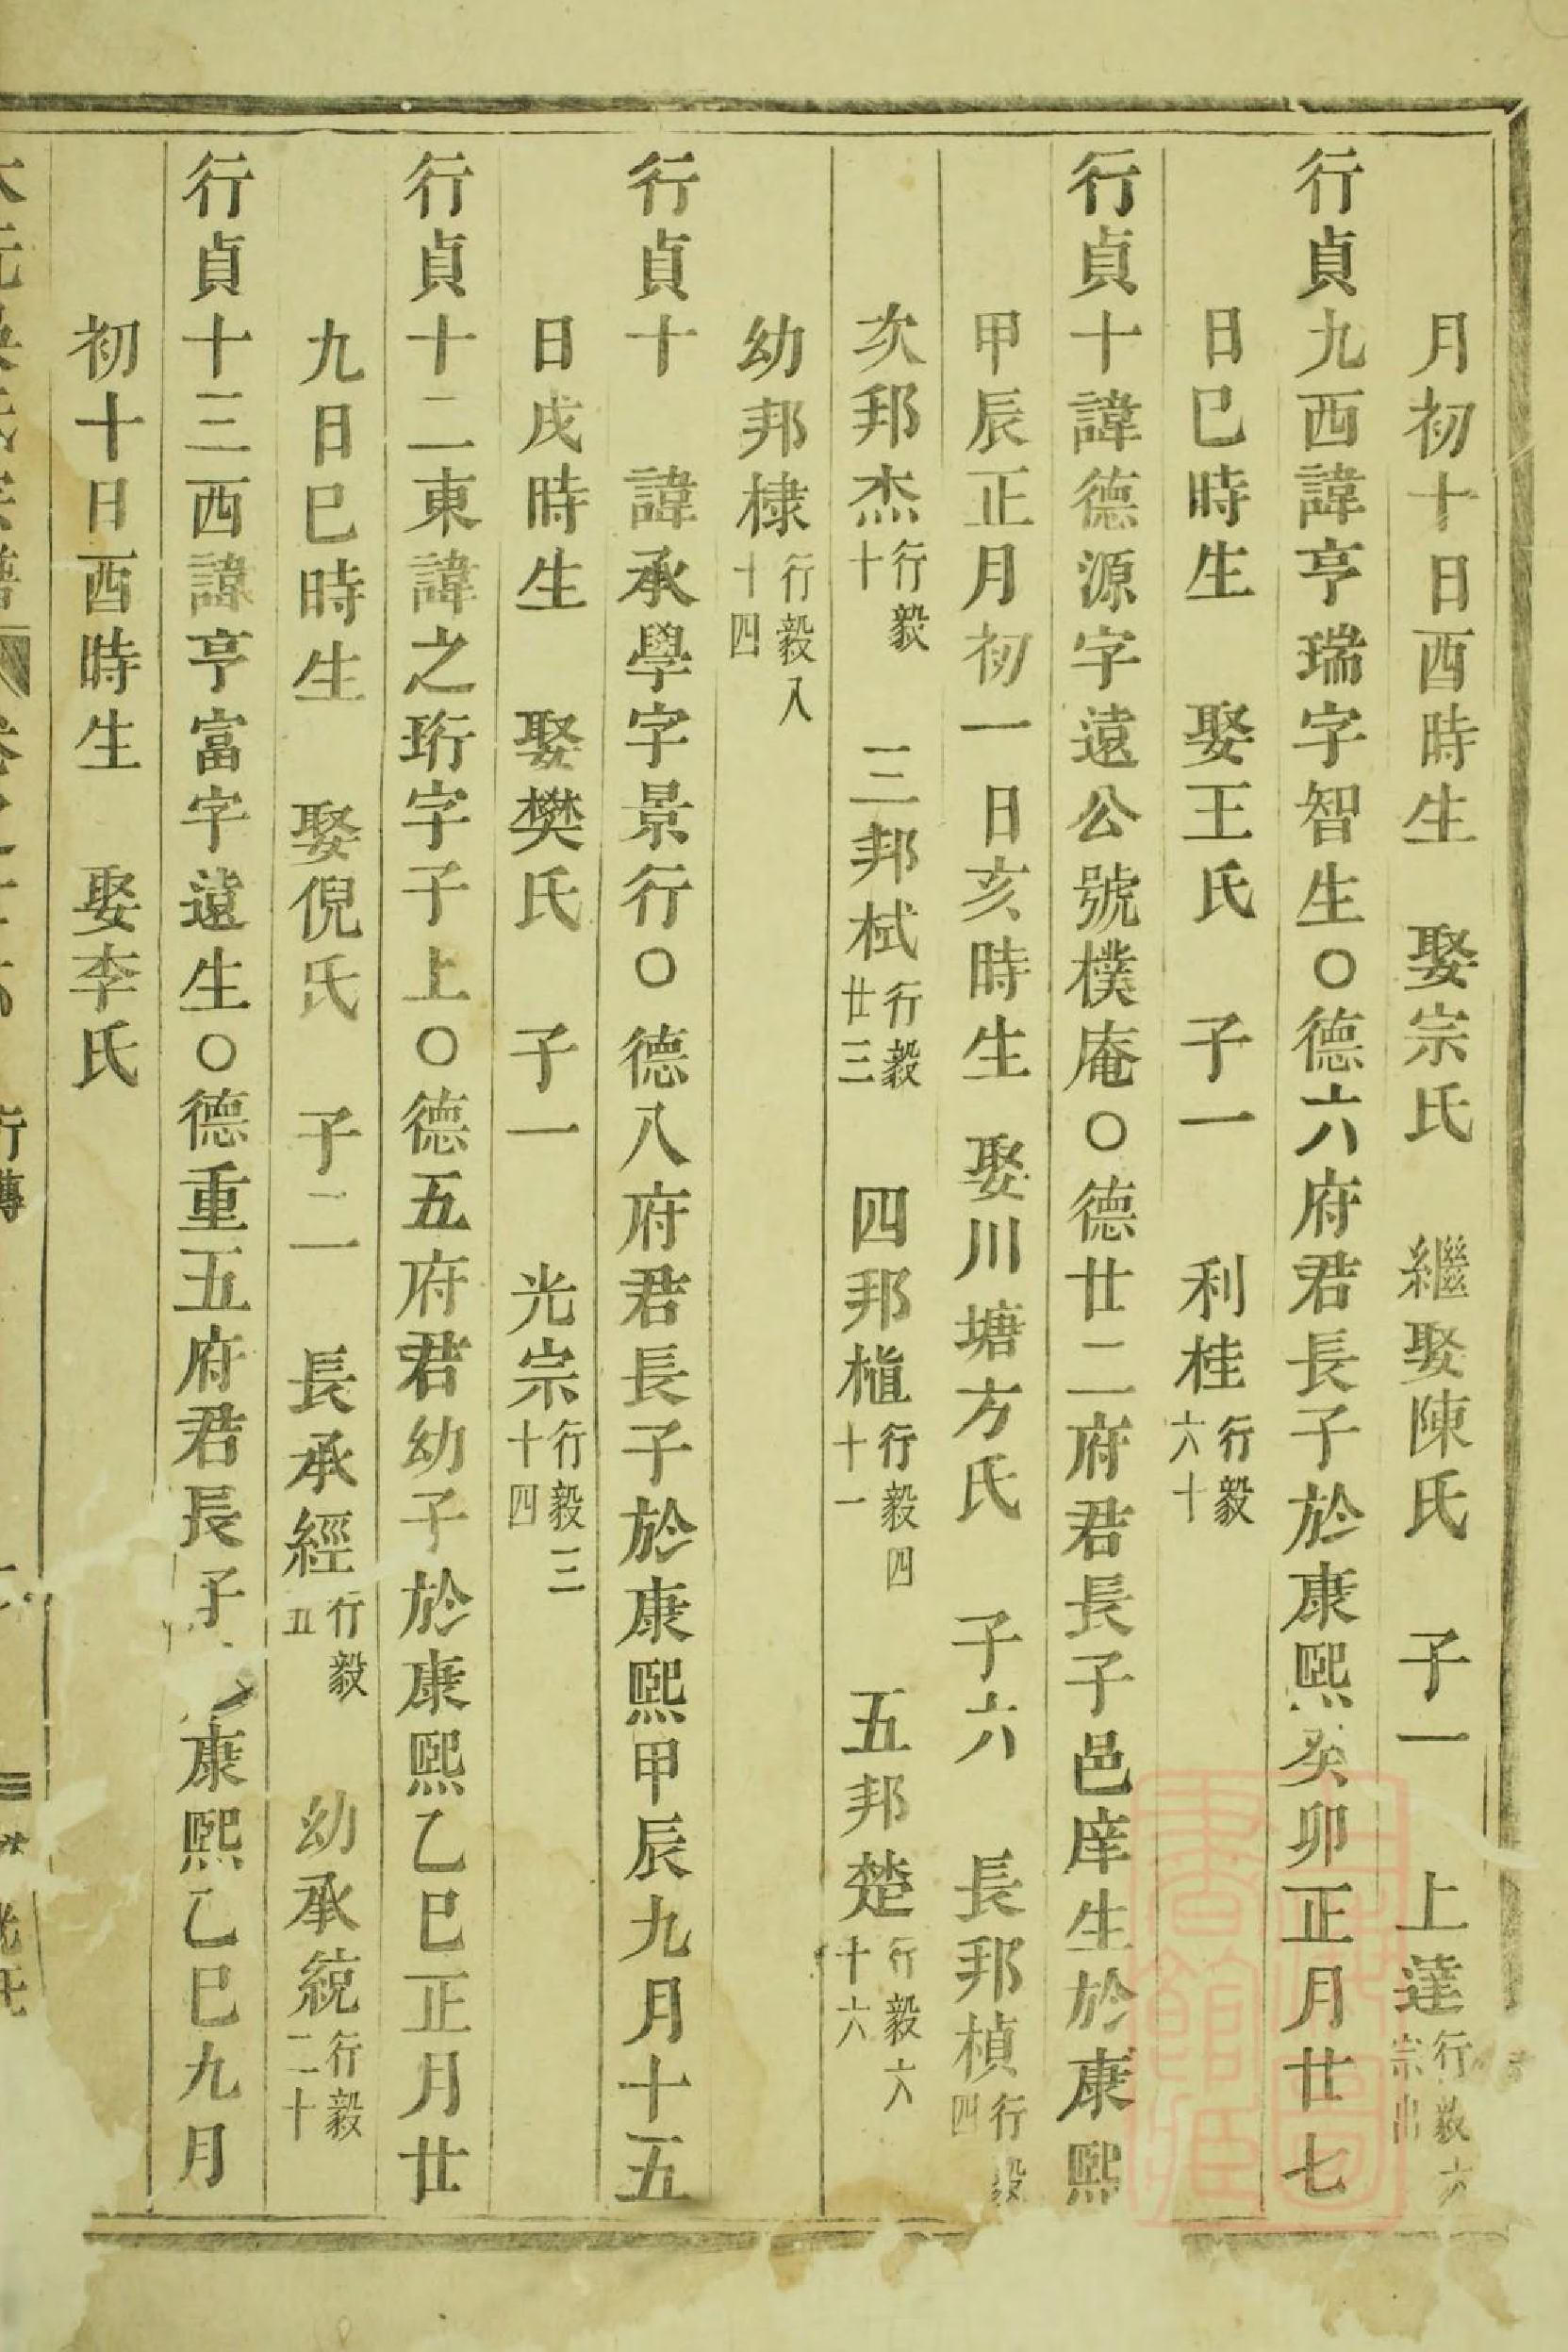 月初十日酉時生　娶宗氏　繼娶陳氏　子一　上達行毅六宗出
行貞九西諱亨瑞字智生○德六府君長子於康熙癸卯正月廿七
日巳時生　娶王氏　子一　利桂行毅六十
行貞十諱德源字遠公號樸庵○德廿二府君長子邑庠生於康熙
甲辰正月初一日亥時生　娶川塘方氏　子六　長邦楨行毅四
次邦杰行毅十　三邦栻行毅廿三　四邦植行毅四十一　五邦楚行毅六十六
幼邦棣行毅八十四
行貞十　諱承學字景行○德八府君長子於康熙甲辰九月十五
日戌時生　娶樊氏　子一　光宗行毅三十四
行貞十二東諱之珩字子上○德五府君幼子於康熙乙巳正月廿
九日巳時生　娶倪氏　子二　長承經行毅五　幼承統行毅二十
行貞十三西諱亨富字遠生○德重五府君長子康熙乙巳九月
初十日酉時生　娶李氏